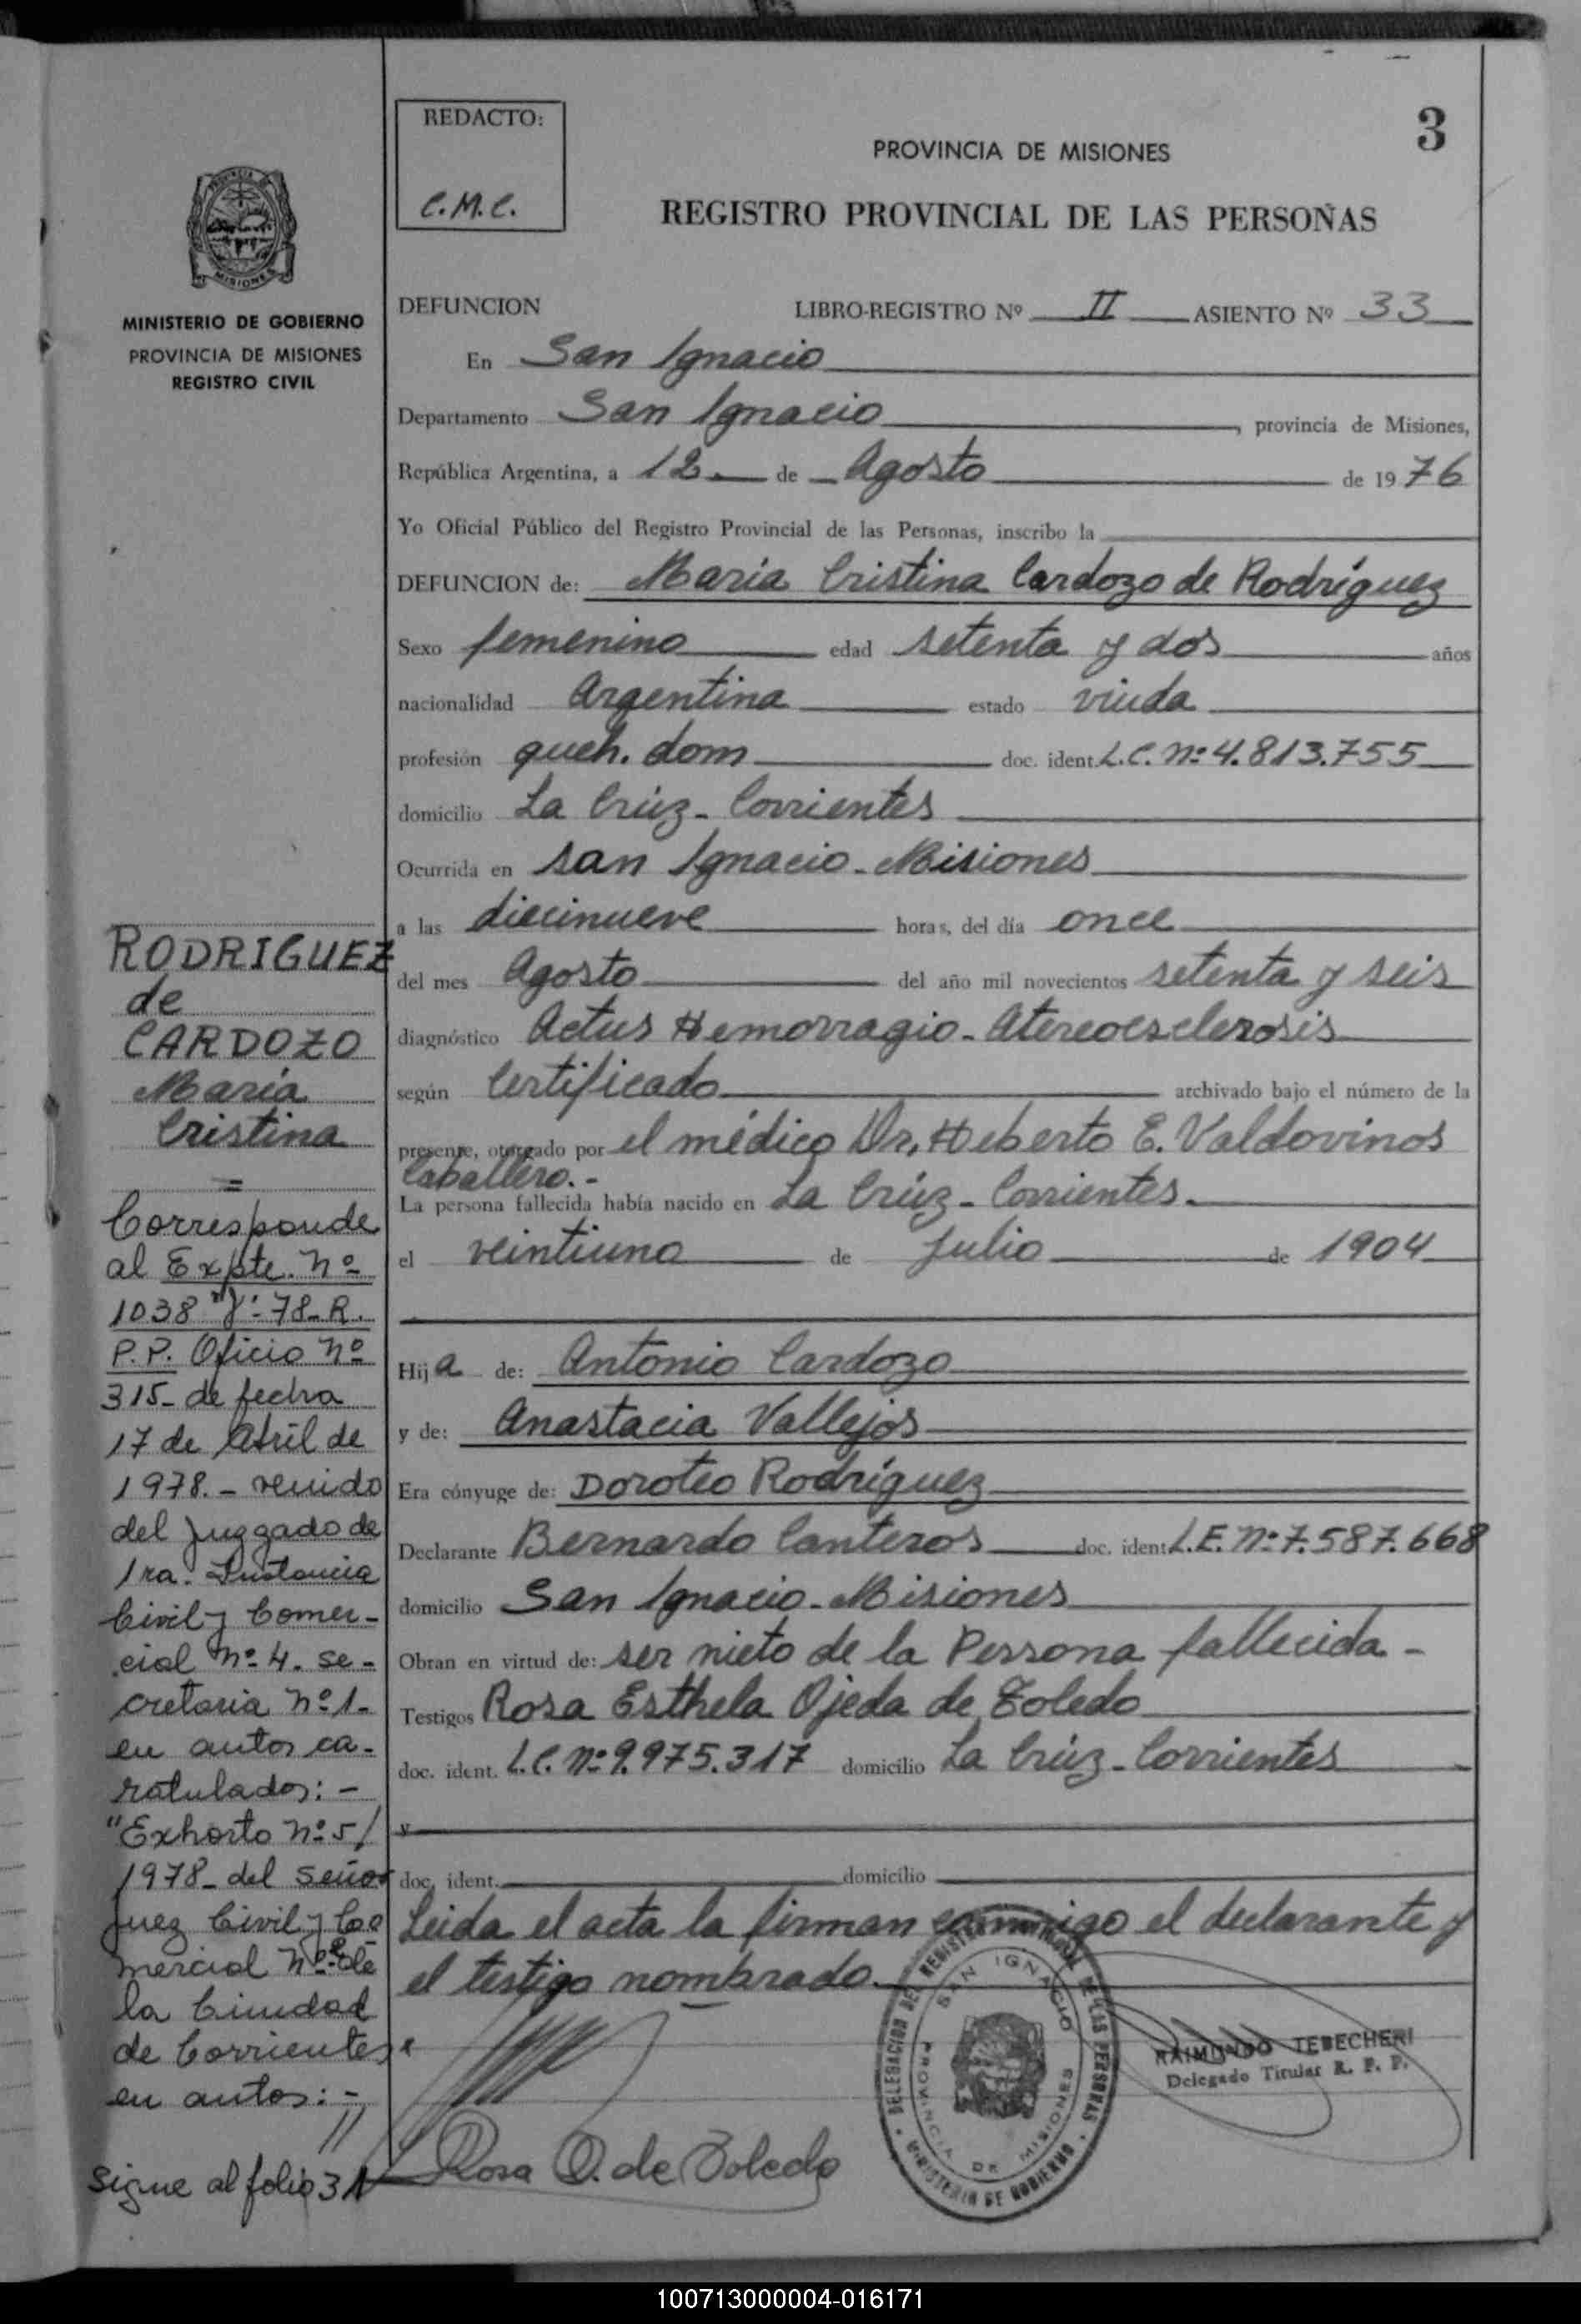 3
REDACTO:
C.M.C.
PROVINCIA DE MISIONES
REGISTRO PROVINCIAL DE LAS PERSONAS
PROVINCIA DE
MISIONES
MINISTERIO DE GOBIERNO
PROVINCIA DE MISIONES
REGISTRO CIVIL
DEFUNCION LIBRO-REGISTRO Nº II ASIENTO Nº 33
En San Ignacio
Departamento San Ignacio, provincia de Misiones,
República Argentina, a 12 de Agosto de 1976
Yo Oficial Público del Registro Provincial de las Personas, inscribo la
DEFUNCION de: Maria Cristina Cardozo de Rodríguez
Sexo femenino edad setenta y dos años
nacionalidad Argentina estado viuda
profesión queh. dom doc. ident. L.C. Nº 4.813.755
domicilio La Crúz - Corrientes
Ocurrida en San Ignacio - Misiones
a las diecinueve horas, del día once
del mes Agosto del año mil novecientos setenta y seis
diagnóstico Actus Hemorragio - Atereoesclerosis
según Certificado archivado bajo el número de la
presente, otorgado por el médico Dr. Heberto E. Valdovinos
Caballero.-
La persona fallecida había nacido en La Crúz - Corrientes.
el veintiuno de Julio de 1904
Hija de: Antonio Cardozo
y de: Anastacia Vallejos
Era cónyuge de: Doroteo Rodríguez
Declarante Bernardo Canteros doc. ident. L.E. Nº 7.587.668
domicilio San Ignacio - Misiones
Obran en virtud de: ser nieto de la Persona fallecida -
Testigos Rosa Esthela Ojeda de Toledo
doc. ident. L.C. Nº 9.975.317 domicilio La Crúz - Corrientes
y
doc. ident. domicilio
Leida el acta la firman conmigo el declarante y
el testigo nombrado.
RODRIGUEZ
de
CARDOZO
Maria
Cristina
=
Corresponde
al Expte. Nº
1038 - 78-R.
P.P. Oficio Nº
315- de fecha
17 de Abril de
1978.- venido
del Juzgado de
1ra. Instancia
Civil y Comer-
cial Nº 4. se-
cretaria Nº 1-
en autos ca-
ratulados: -
"Exhorto Nº 5/
1978- del señor
Juez Civil y Co-
mercial Nº de
la Ciudad
de Corrientes
en autos: -
//
Sigue al folio 31
Rosa O. de Toledo
DELEGACION DEL REGISTRO PROVINCIAL DE LAS PERSONAS
MINISTERIO DE GOBIERNO
SAN IGNACIO
PROVINCIA DE MISIONES
RAIMUNDO TEBECHERI
Delegado Titular R. P. P.
100713000004-016171